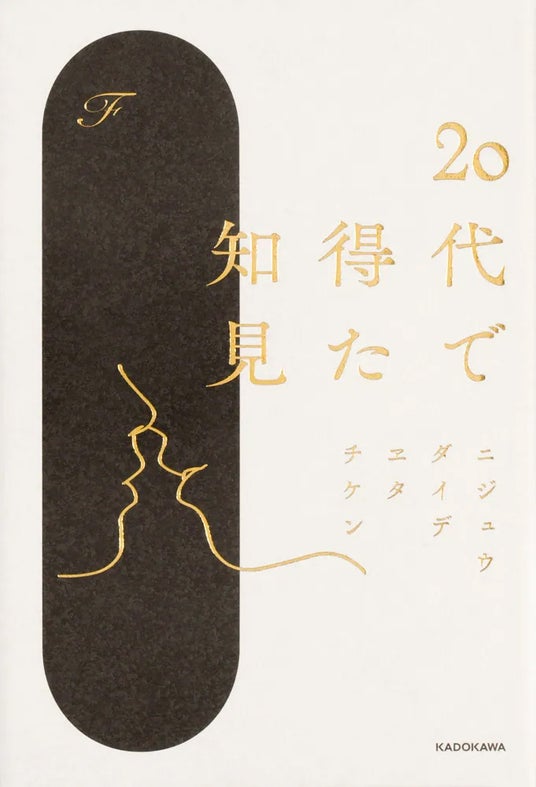 F
20
代で
得た
知見
ニジュウ
ダイデ
ヱタ
チケン
KADOKAWA